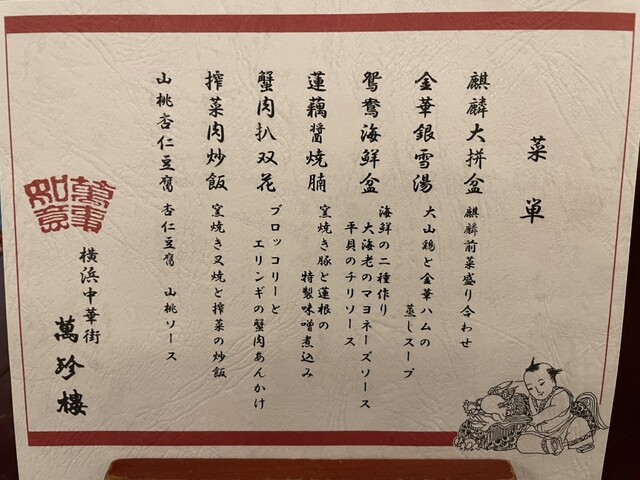 菜単
麒麟大拼盆
麒麟前菜盛り合わせ
金華銀雪湯
大山鶏と金華ハムの
蒸しスープ
鴛鴦海鮮盆
海鮮の二種作り
大海老のマヨネーズソース
平貝のチリソース
蓮藕醤焼腩
窯焼き豚と蓮根の
特製味噌煮込み
蟹肉扒双花
ブロッコリーと
エリンギの蟹肉あんかけ
搾菜肉炒飯
窯焼き叉焼と搾菜の炒飯
山桃杏仁豆腐
杏仁豆腐 山桃ソース
萬事如意
横浜中華街
萬珍樓